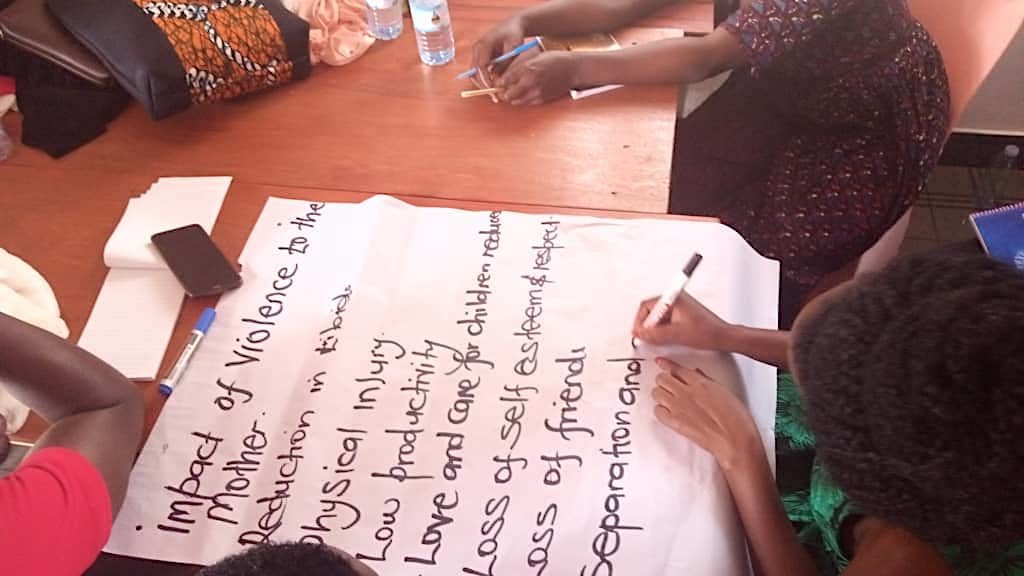 Impact of Violence to the
Mother.
Reduction in
Physical Injury.
Low productivity
Love and care for children reduces
Loss of self essteem & respect.
Loss of friends
Separation and